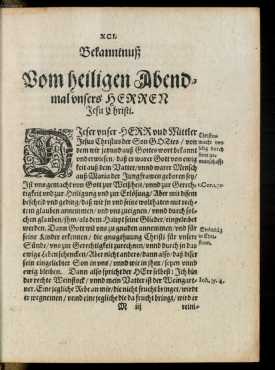 XCI.
Bekanntnuß
Vom heiligen Abend-
mal vnsers HERREN
Jesu Christi.
DJeser vnser HERR vnd Mittler
Jesus Christus der Son GOttes / von
dem wir jetund auß Gottes wort bekannt
vnd erwiesen / daß er warer Gott von ewig
keit auß dem Vatter / vnnd warer Mensch
auß Maria der Jungfrawen geboren sey /
Jst vns gemacht von Gott zur Weißheit / vnnd zur Gerech-
tigkeit vnd zur Heiligung vnd zur Erlösung / Aber mit disem
bescheid vnd geding / daß wir jn vnd seine wolthaten mit rech-
tem glauben annemen / vnd vns zueignen / vnnd durch sol-
chen glauben jhm / als dem Haupt seine Glider / eingeleibet
werden. Dann Gott wil vns zu gnaden annemmen / vnd für
seine Kinder erkennen / die gnugthuung Christi für vnsere
Sünde / vns zur Gerechtigkeit zurechnen / vnnd durch jn das
ewige Leben schencken / Aber nicht anders / dann also / daß diser
sein eingeliebter Son in vns / vnnd wir in jhm / seyen vnnd
ewig bleiben. Dann also spricht der HErr selbest: Jch bin
der rechte Weinstock / vnnd mein Vatter ist der Weingart-
ner. Eine jegliche Rebe an mir / die nicht frucht bringet / wirdt
er wegnemen / vnnd eine jegliche die da frucht bringt / wird er
M iij
reini-
Christus
macht vns
durch
1. Cor. 1.
in Chri-
stum.
Joh. 15.